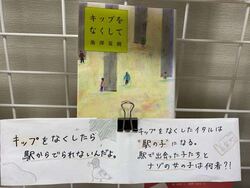 キップを
なくして
池澤夏樹
キップをなくしたら
駅からでられないんだよ。
キップをなくしたイタルは
“駅の子”になる。
駅で出会った子たちと
ナゾの女の子は何者?!